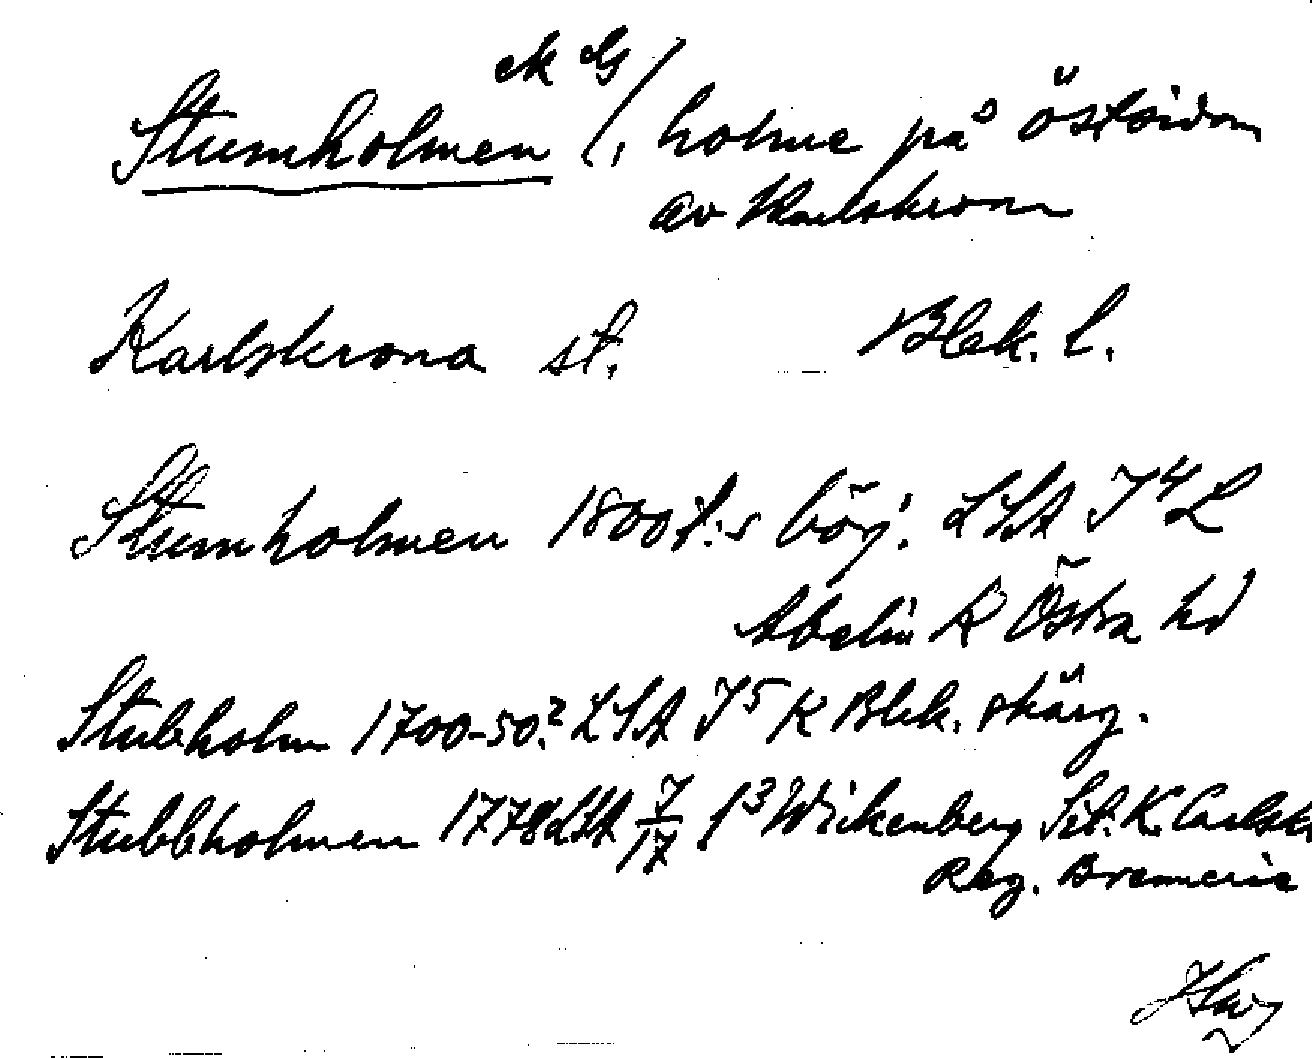 ek G
Stumholmen /, holme på östsidan
av Karlskrona
Karlskrona st. Blek. l.
Stumholmen 1800t:s börj. LSA J4L
Abelin K Östra hd
Stubholm 1700-50.? LSA J5 K Blek. skärg.
Stubbholmen 1778 LSA 7/17 f3 Wickenberg Sit. K. Carlskr
Reg.